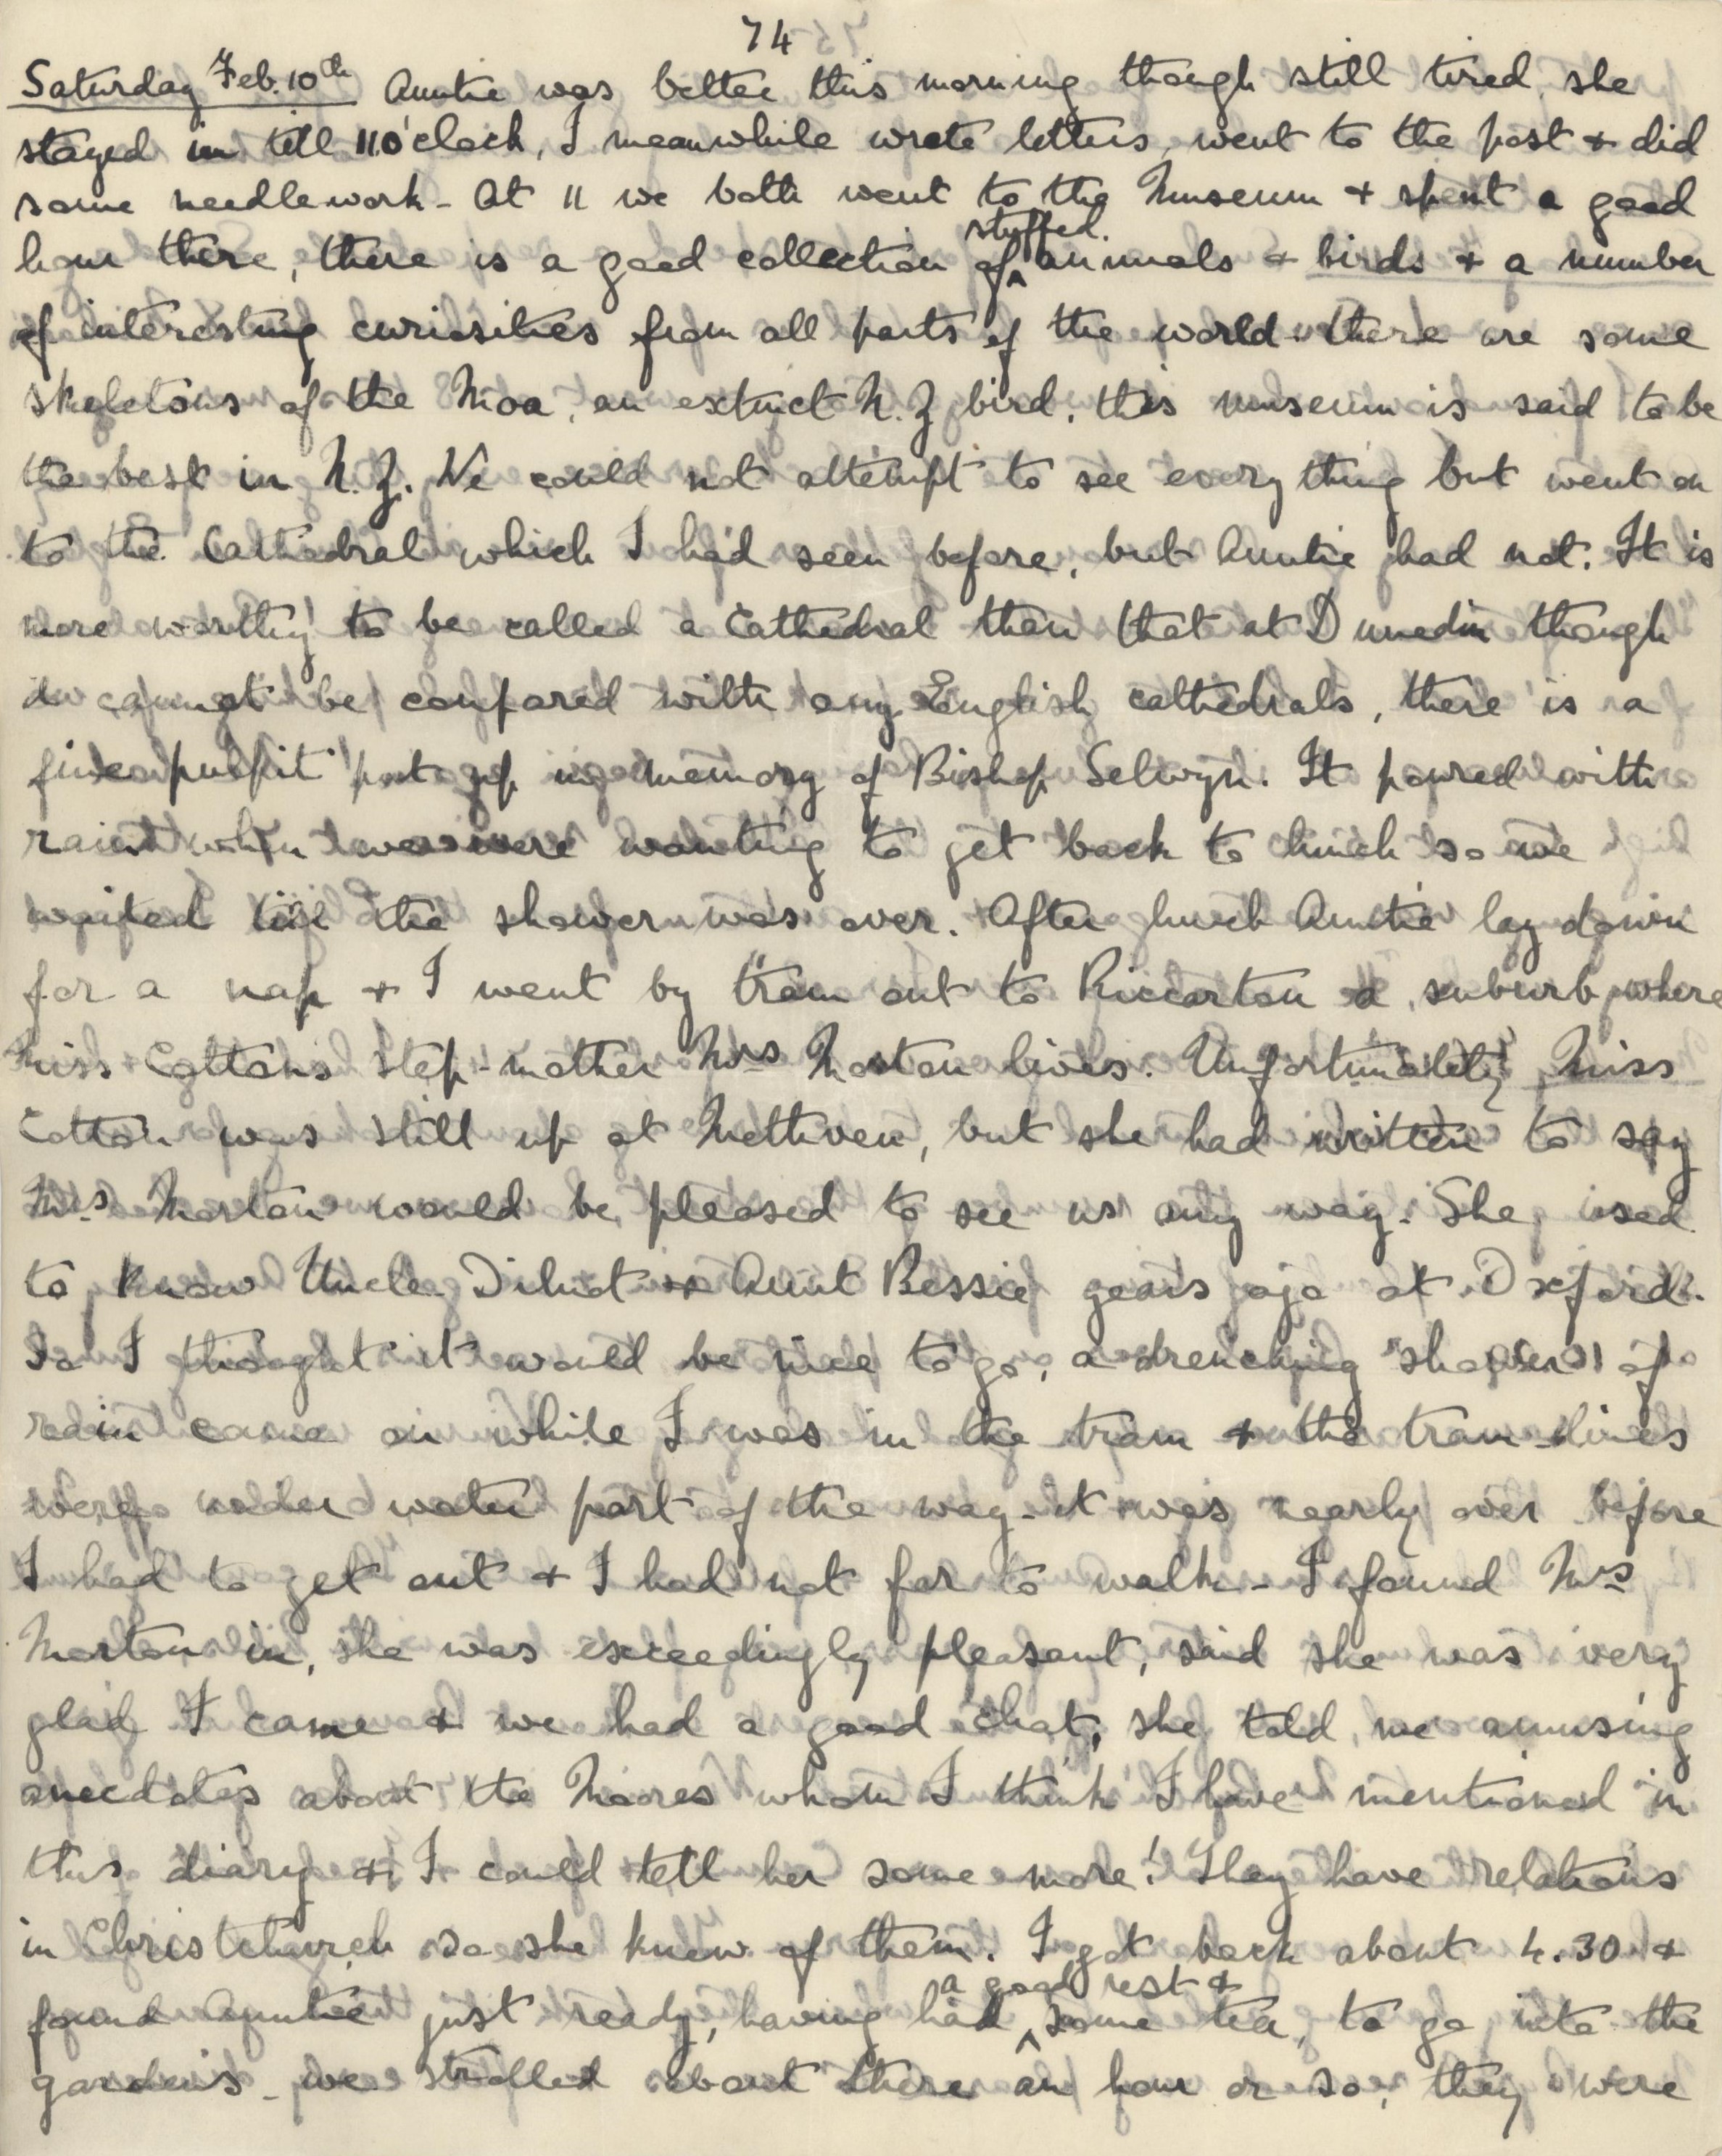 74
Saturday Feb. 10th Auntie was better this morning though still tired, she
stayed in till 11 O'clock, I meanwhile wrote letters, went to the post & did
some needlework - At 11 we both went to the Museum & spent a good
hour there, there is a good collection of ^stuffed. animals & birds & a number
of interesting curiosities from all parts of the world. there are some
skeletons of the Moa, an extinct N.Z bird, this museum is said to be
the best in N.Z. We could not attempt to see every thing but went on
to the Cathedral which I had seen before, but Auntie had not. It is
more worthy to be called a Cathedral than that at Dunedin though
it cannot be compared with any English cathedrals, there is a
fine pulpit put up in memory of Bishop Selwyn. It poured with
rain when we were wanting to get back to lunch so we
waited till the shower was over. After lunch Auntie lay down
for a nap & I went by tram out to Riccarton a suburb where
Miss Cottons step-mother Mrs Morton lives. Unfortunately Miss
Cotton was still up at Methven, but she had written to say
Mrs Morton would be pleased to see us any way. She used
to know Uncle & Aunt Bessie years ago at Oxford.
So I thought it would be nice to go, a drenching shower of
rain came on while I was in the tram & the tram-lines
were under water part of the way - it was nearly over before
I had to get out & I had not far to walk - I found Mrs
Morton in, she was exceedingly pleasant, said she was very
glad I came & we had a good chat, she told me amusing
anecdotes about the Moores whom I think I have mentioned in
this diary & I could tell her some more! They have relations
in Christchurch so she knew of them. I got back about 4.30 &
found Auntie just ready, having had ^a good rest & some tea, to go into the
gardens - we strolled about there an hour or so, they were